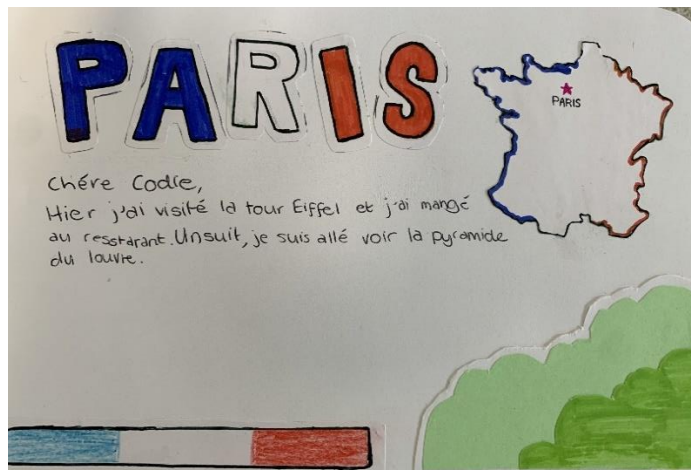 PARIS
PARIS
Chére Codie,
Hier j'ai visité la tour Eiffel et j'ai mangé
au resstarant. Unsuit, je suis allé voir la pyramide
du louvre.